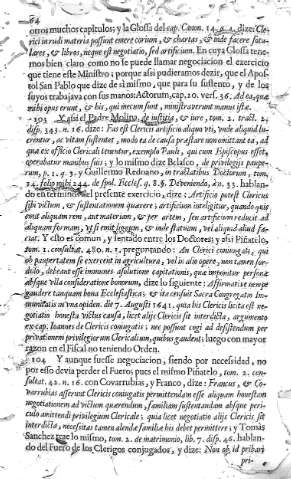 64
otros muchos capitulos; y la Glossa del cap. Canon. 14. q. 4. dize: Cle-
rici in rudi materia possunt emere corium, & chartas, & inde facere sutu-
lares, & libros, neque est negotiatio, sed artificium. En cuya Glossa tene-
mos bien claro como no se puede llamar negociacion el exercicio
que tiene este Ministro; porque assi pudieramos dezir, que el Apos-
tol San Pablo que dize de si mismo, que para su sustento, y de los
suyos trabajava con sus manos Actorum, cap. 20. vers. 36. ad ea, quæ
mihi opus erant, & his, qui mecum sunt, ministraverunt manus istæ.
103 Y assi el Padre Molina, de iustitia, & iure, tom. 2. tract. 2.
disp. 343. n. 16. dize: Fas est Clericis artificio aliquo uti, unde aliquid lu-
crentur, ac vitam sustentent, modo tas de causa præstare non omittant ea, ad
quæ ex officio Clericali tenentur, exemplo Pauli, qui cum Episcopus esset,
operabatur manibus suis; y lo mismo dize Belasco, de privilegijs paupe-
rum, p. 1. q. 3. y Guillermo Redoano, in tractatibus Doctorum, tom.
14. folio mihi 244. de spol. Eccles. q. 8. §. Deveniendo, nu. 33. hablan-
do en terminos del presente exercicio, dize: Artificio potest Clericus
sibi victum, & sustentationem quærere; artificium intelligitur, quando quis
emit aliquam rem, aut materiam, & per artem, seu artificium reducit ad
aliquam formam, vt si emit lignum, & inde statuam, vel aliquid aliud fa-
ciat. Y esto es comun, y sentado entre los Doctores; y assi Piñatelo,
tom. 2. consultat. 480. n. 5. preguntando: An Clerici coniugati, qui
ob paupertatem se exercent in agricultura, vel in alio opere, non tamen sor-
dido, debeant esse immunes à solutione capitationis, quæ imponitur personæ
absque vlla consideratione bonorum, dize lo siguiente: Affirmative semper
gaudere tanquam bona Ecclesiastica; & ita censuit Sacra Congregatio Im-
munitatis in vna opidan. die 7. Augusti 1641. quia his Clericis licita est ne-
gotiatio honesta victus causa, licet alijs Clericis sit interdicta, argumento
ex cap. Ioannes de Clericis coniugatis; nec possunt cogi ad desistendum per
privationem privilegiorum Clericalium, quibus gaudent; luego con mayor
razon en el Fiscal no teniendo Orden.
104 Y aunque fuesse negociacion, siendo por necesidad, no
por esso devia perder el Fuero; pues el mismo Piñatelo, tom. 2. con-
sultat. 42. n. 16. con Covarrubias, y Franco, dize: Francus, & Co-
varrubias asserunt Clericis coniugatis permittendam esse aliquam honestam
negotiationem ad victum quærendum, familiam sustentandam absque peri-
culo amittendi privilegium Clericale: quia licet negotiatio alijs Clericis sit
interdicta, necessitas tamen alendæ familiæ his debet permittere; y Tomàs
Sanchez trae lo mismo, tom. 2. de matrimonio, lib. 7. disp. 46. hablan-
do del Fuero de los Clerigos conjugados, y dize: Non ob id privari
pri-